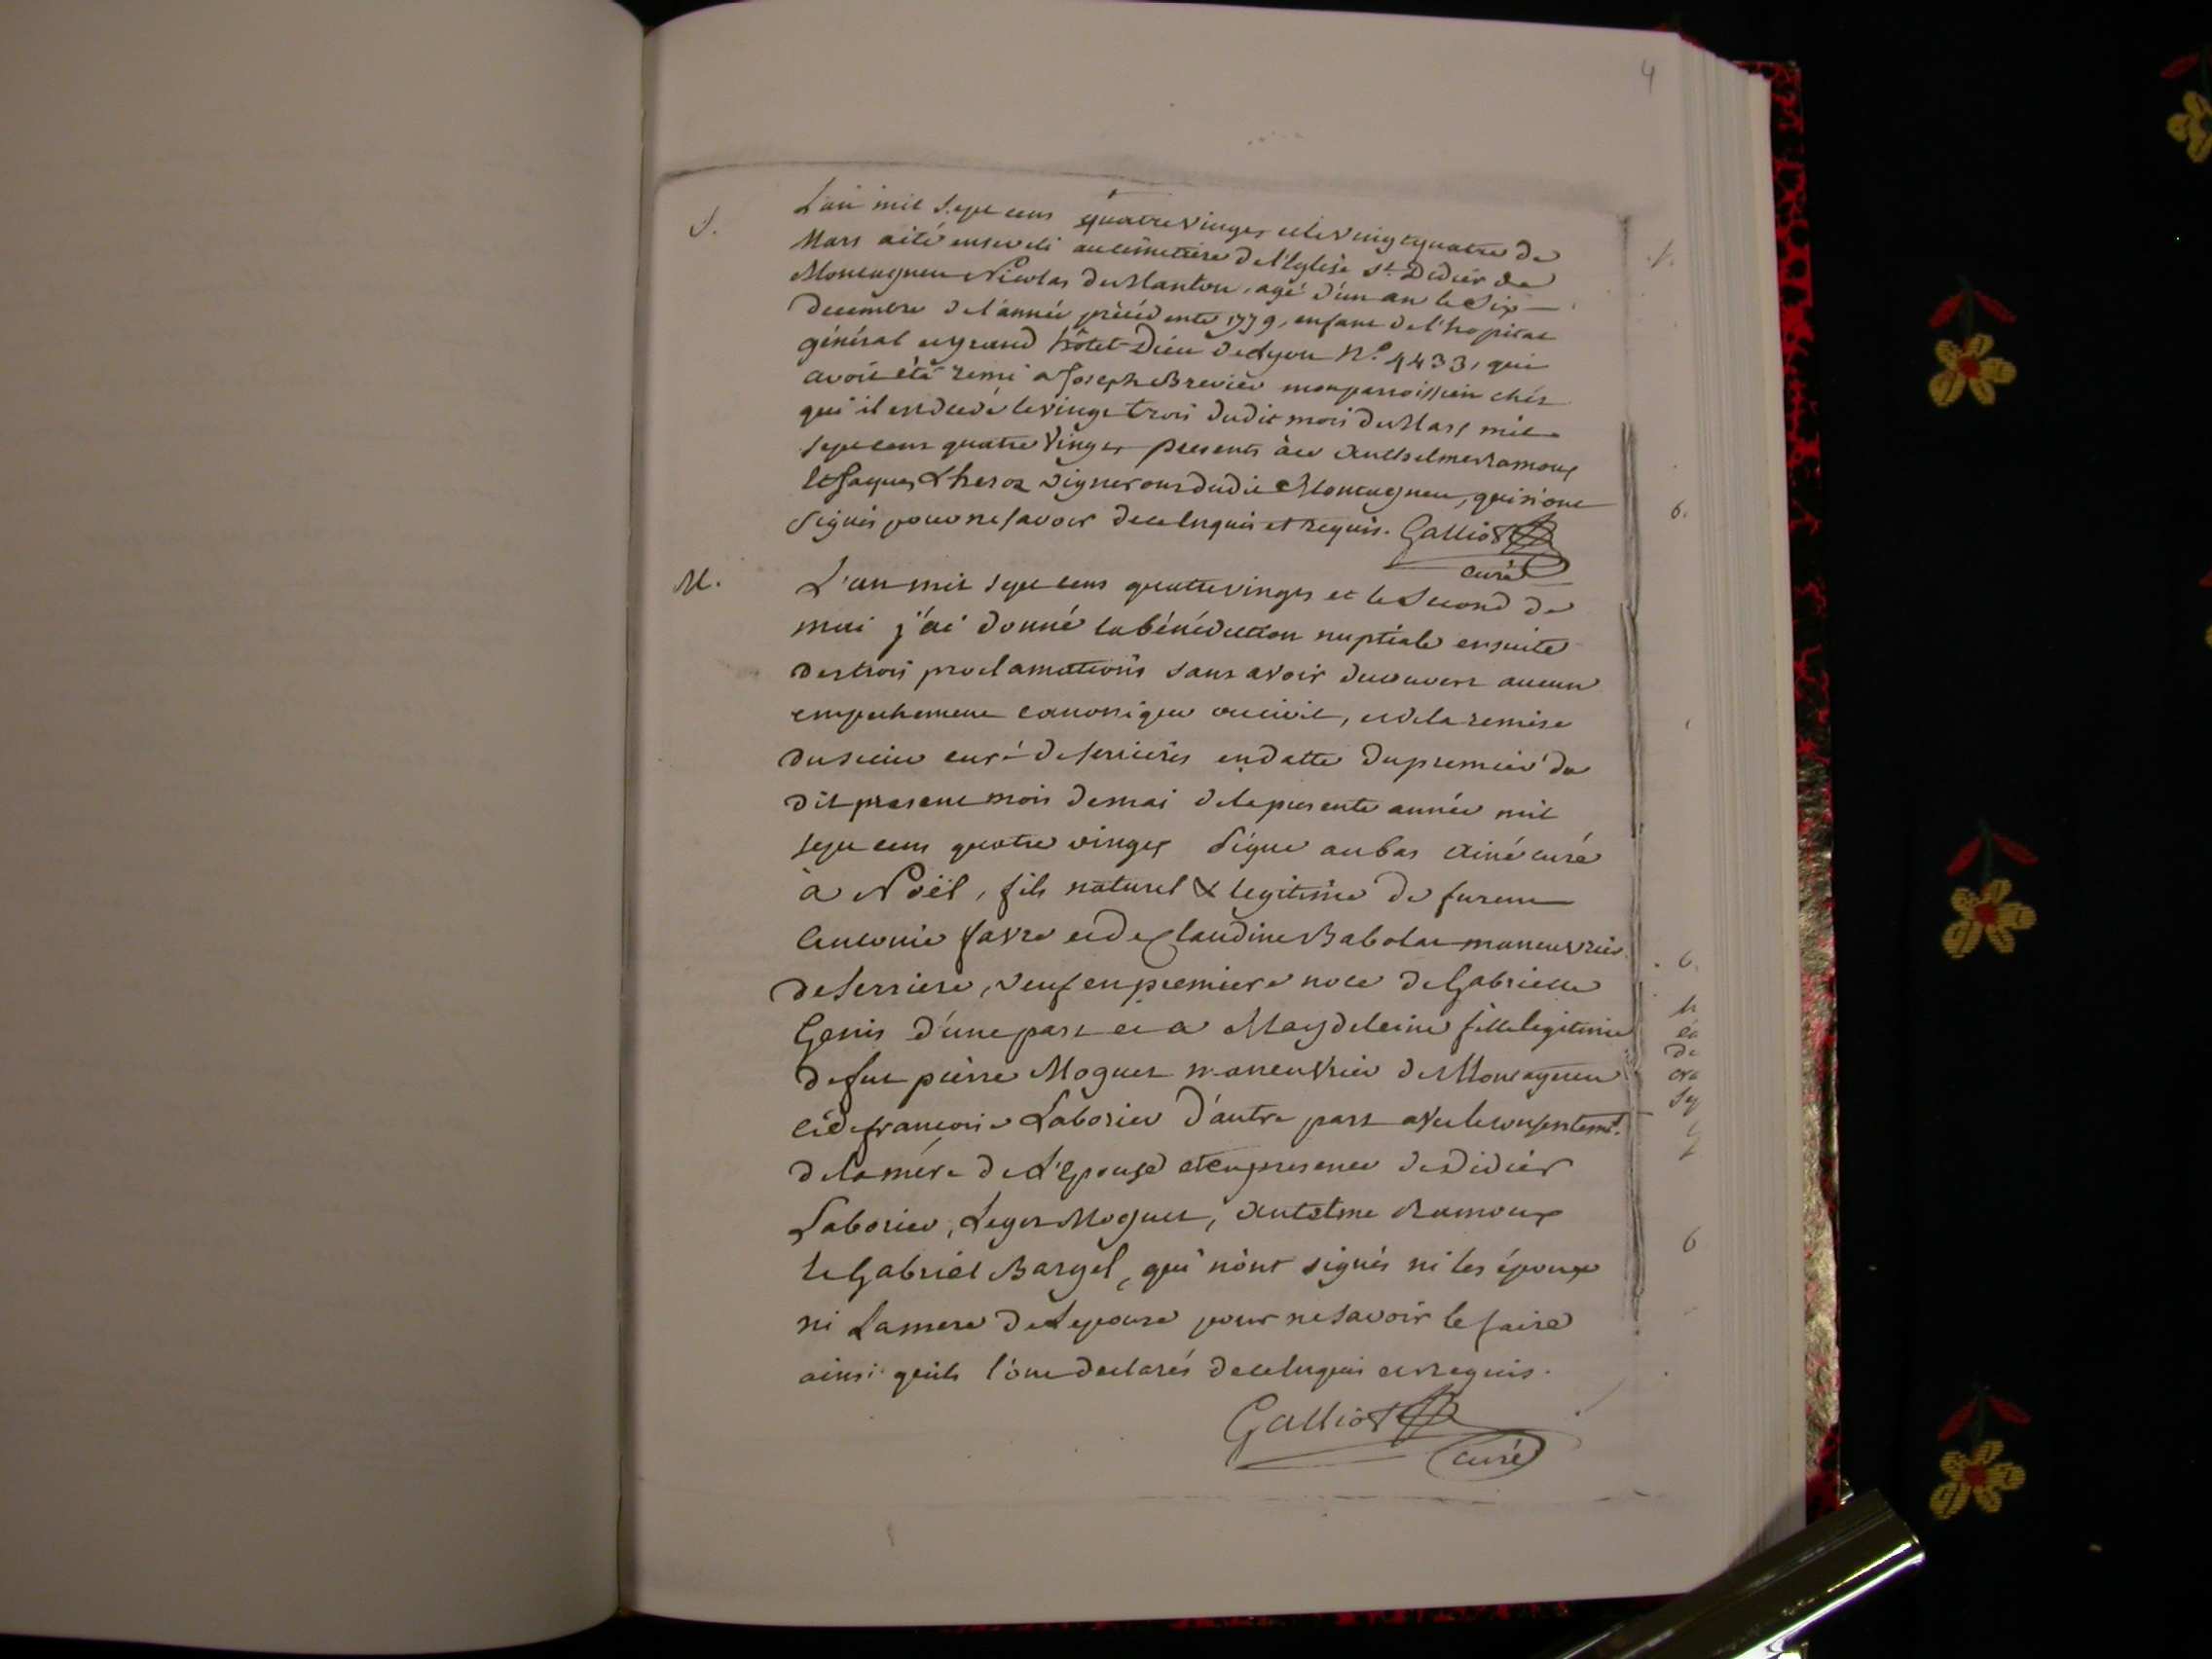 4
S.
L'an mil sept cens quatre vingts et le vingt quatre de
Mars a été enseveli au cimetiere de l'Eglise St. Didier de
Montagneu Nicolas du Manton, agé d'un an le Six
Decembre de l'année précédente 1779, enfant de l'hopital
général et grand hôtel-Dieu de Lyon N.º 4433, qui
avoit été remi a Joseph Brevier mon paroissien chés
qui il est décédé le vingt trois dudit mois de Mars mil
sept cens quatre vingts presents àce Anthelme Ramoux
et Jaques Lheroz vignerons dudit Montagneu, qui n'ont
signés pour ne savoir de ce enquis et requis. Galliot
curé
M.
L'an mil sept cens quatre vingts et le Second de
mai j'ai donné la bénédiction nuptiale ensuite
des trois proclamations sans avoir decouvert aucun
empechement canonique ou civil, et de la remise
du sieur curé de Serrieres en datte du premier du
dit present mois de mai de la presente année mil
sept cens quatre vingts Signé au bas Ainé curé
à Noël, fils naturel & legitime de furent
Antonie favre et de Claudine Babolat maneuvrier
de Serriere, veuf en premiere noce de Gabrielle
Genis d'une part et a Magdeleine fille legitime
de fut pierre Moguet maneuvrier de Montagneu
et de francoise Laborier d'autre part avec le consentemt.
de la mére de L'Epouse et en presence de Didier
Laborier, Leger Moguet, Antelme Ramoux
et Gabriel Bargel, qui n'ont signés ni les époux
ni La mere de Lepouse pour ne savoir le faire
ainsi qu'ils l'ont declarés de ce enquis et requis.
Galliot
curé